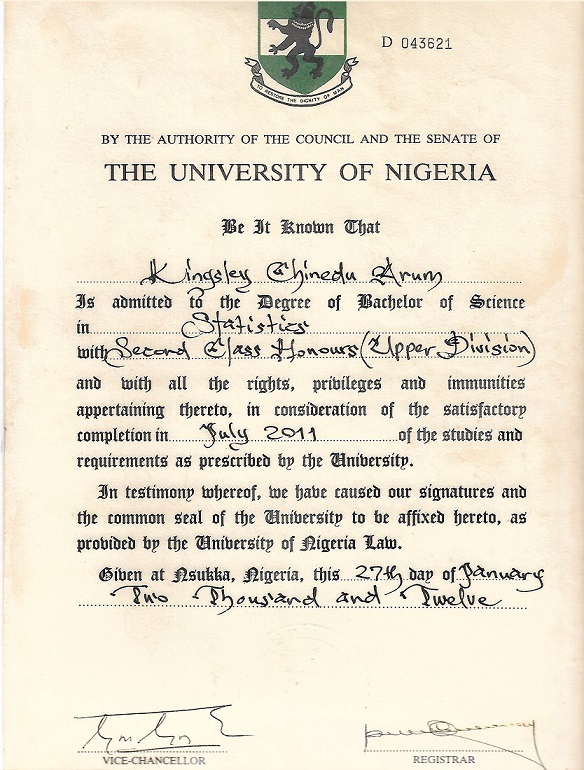 TO RESTORE THE DIGNITY OF MAN
D 043621
BY THE AUTHORITY OF THE COUNCIL AND THE SENATE OF
THE UNIVERSITY OF NIGERIA
Be It Known That
Kingsley Chinedu Arum
Is admitted to the Degree of Bachelor of Science
in Statistics
with Second Class Honours (Upper Division)
and with all the rights, privileges and immunities
appertaining thereto, in consideration of the satisfactory
completion in July 2011 of the studies and
requirements as prescribed by the University.
In testimony whereof, we have caused our signatures and
the common seal of the University to be affixed hereto, as
provided by the University of Nigeria Law.
Given at Nsukka, Nigeria, this 27th day of January
Two Thousand and Twelve
VICE-CHANCELLOR
REGISTRAR